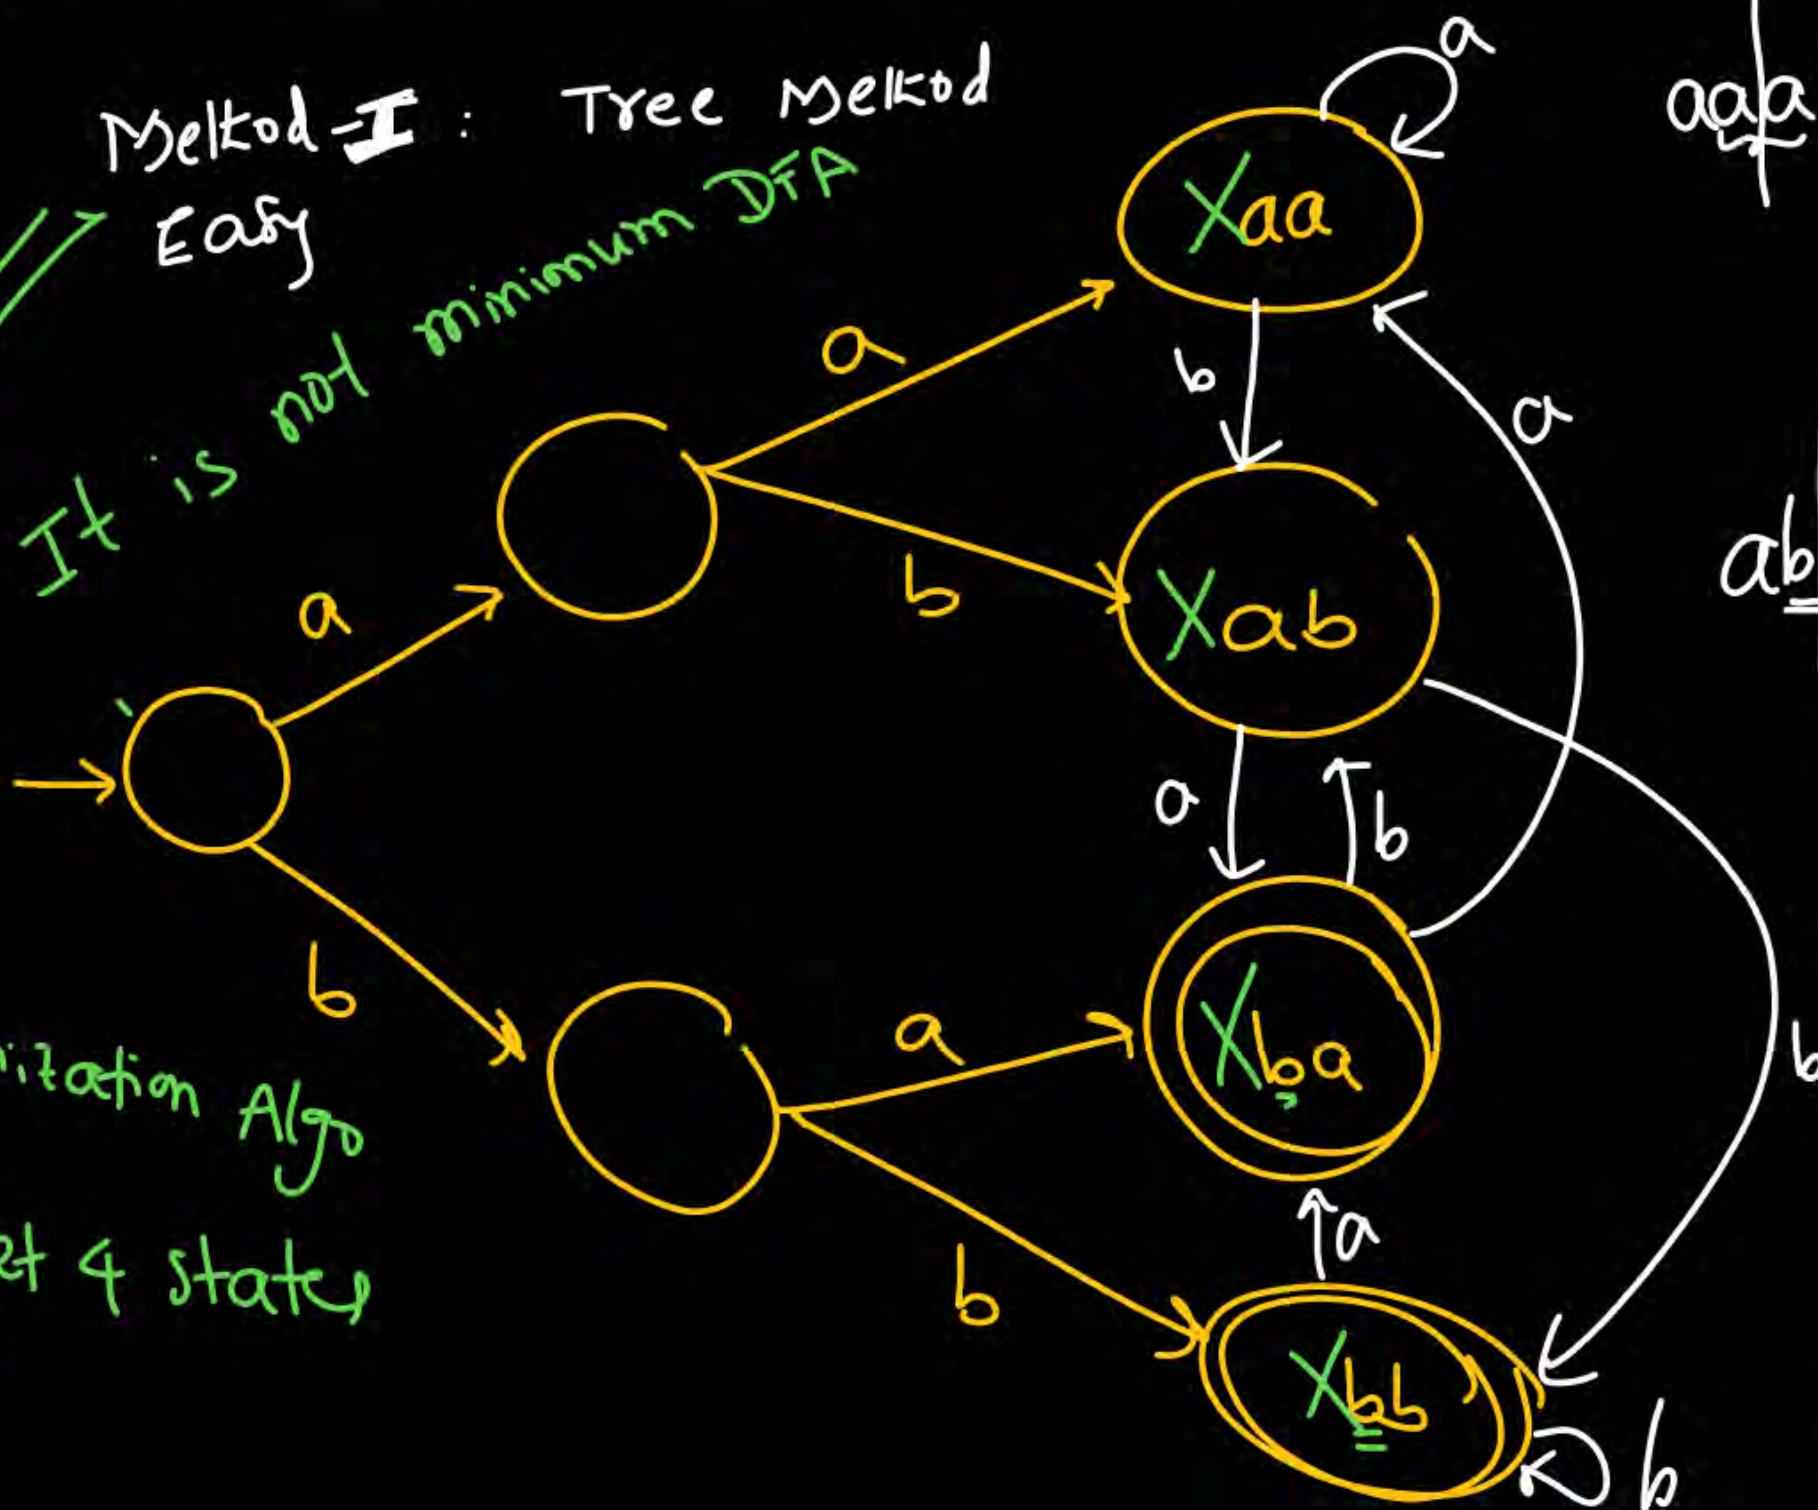 Method-I : Tree Method
Easy
It is not minimum DFA
a
aaa
Xaa
a
b
a
b
Xab
ab
a
a
b
b
a
Xba
b
ization Algo
a
et 4 states
b
Xbb
b